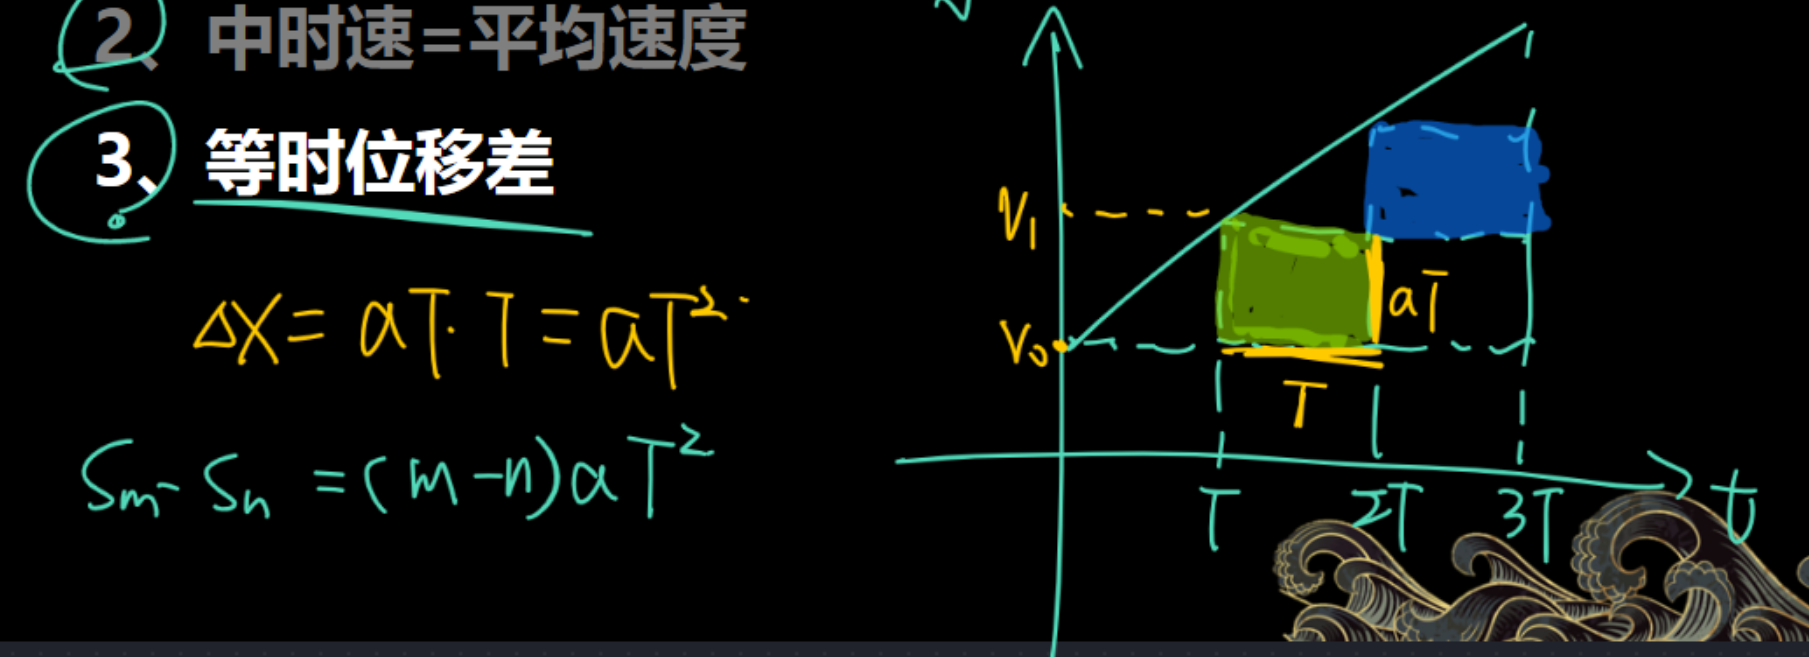 2、中时速=平均速度
3、等时位移差
ΔX = aT·T = aT²
Sm - Sn = (m-n)aT²
V
V₁
V₀
aT
T
T 2T 3T t